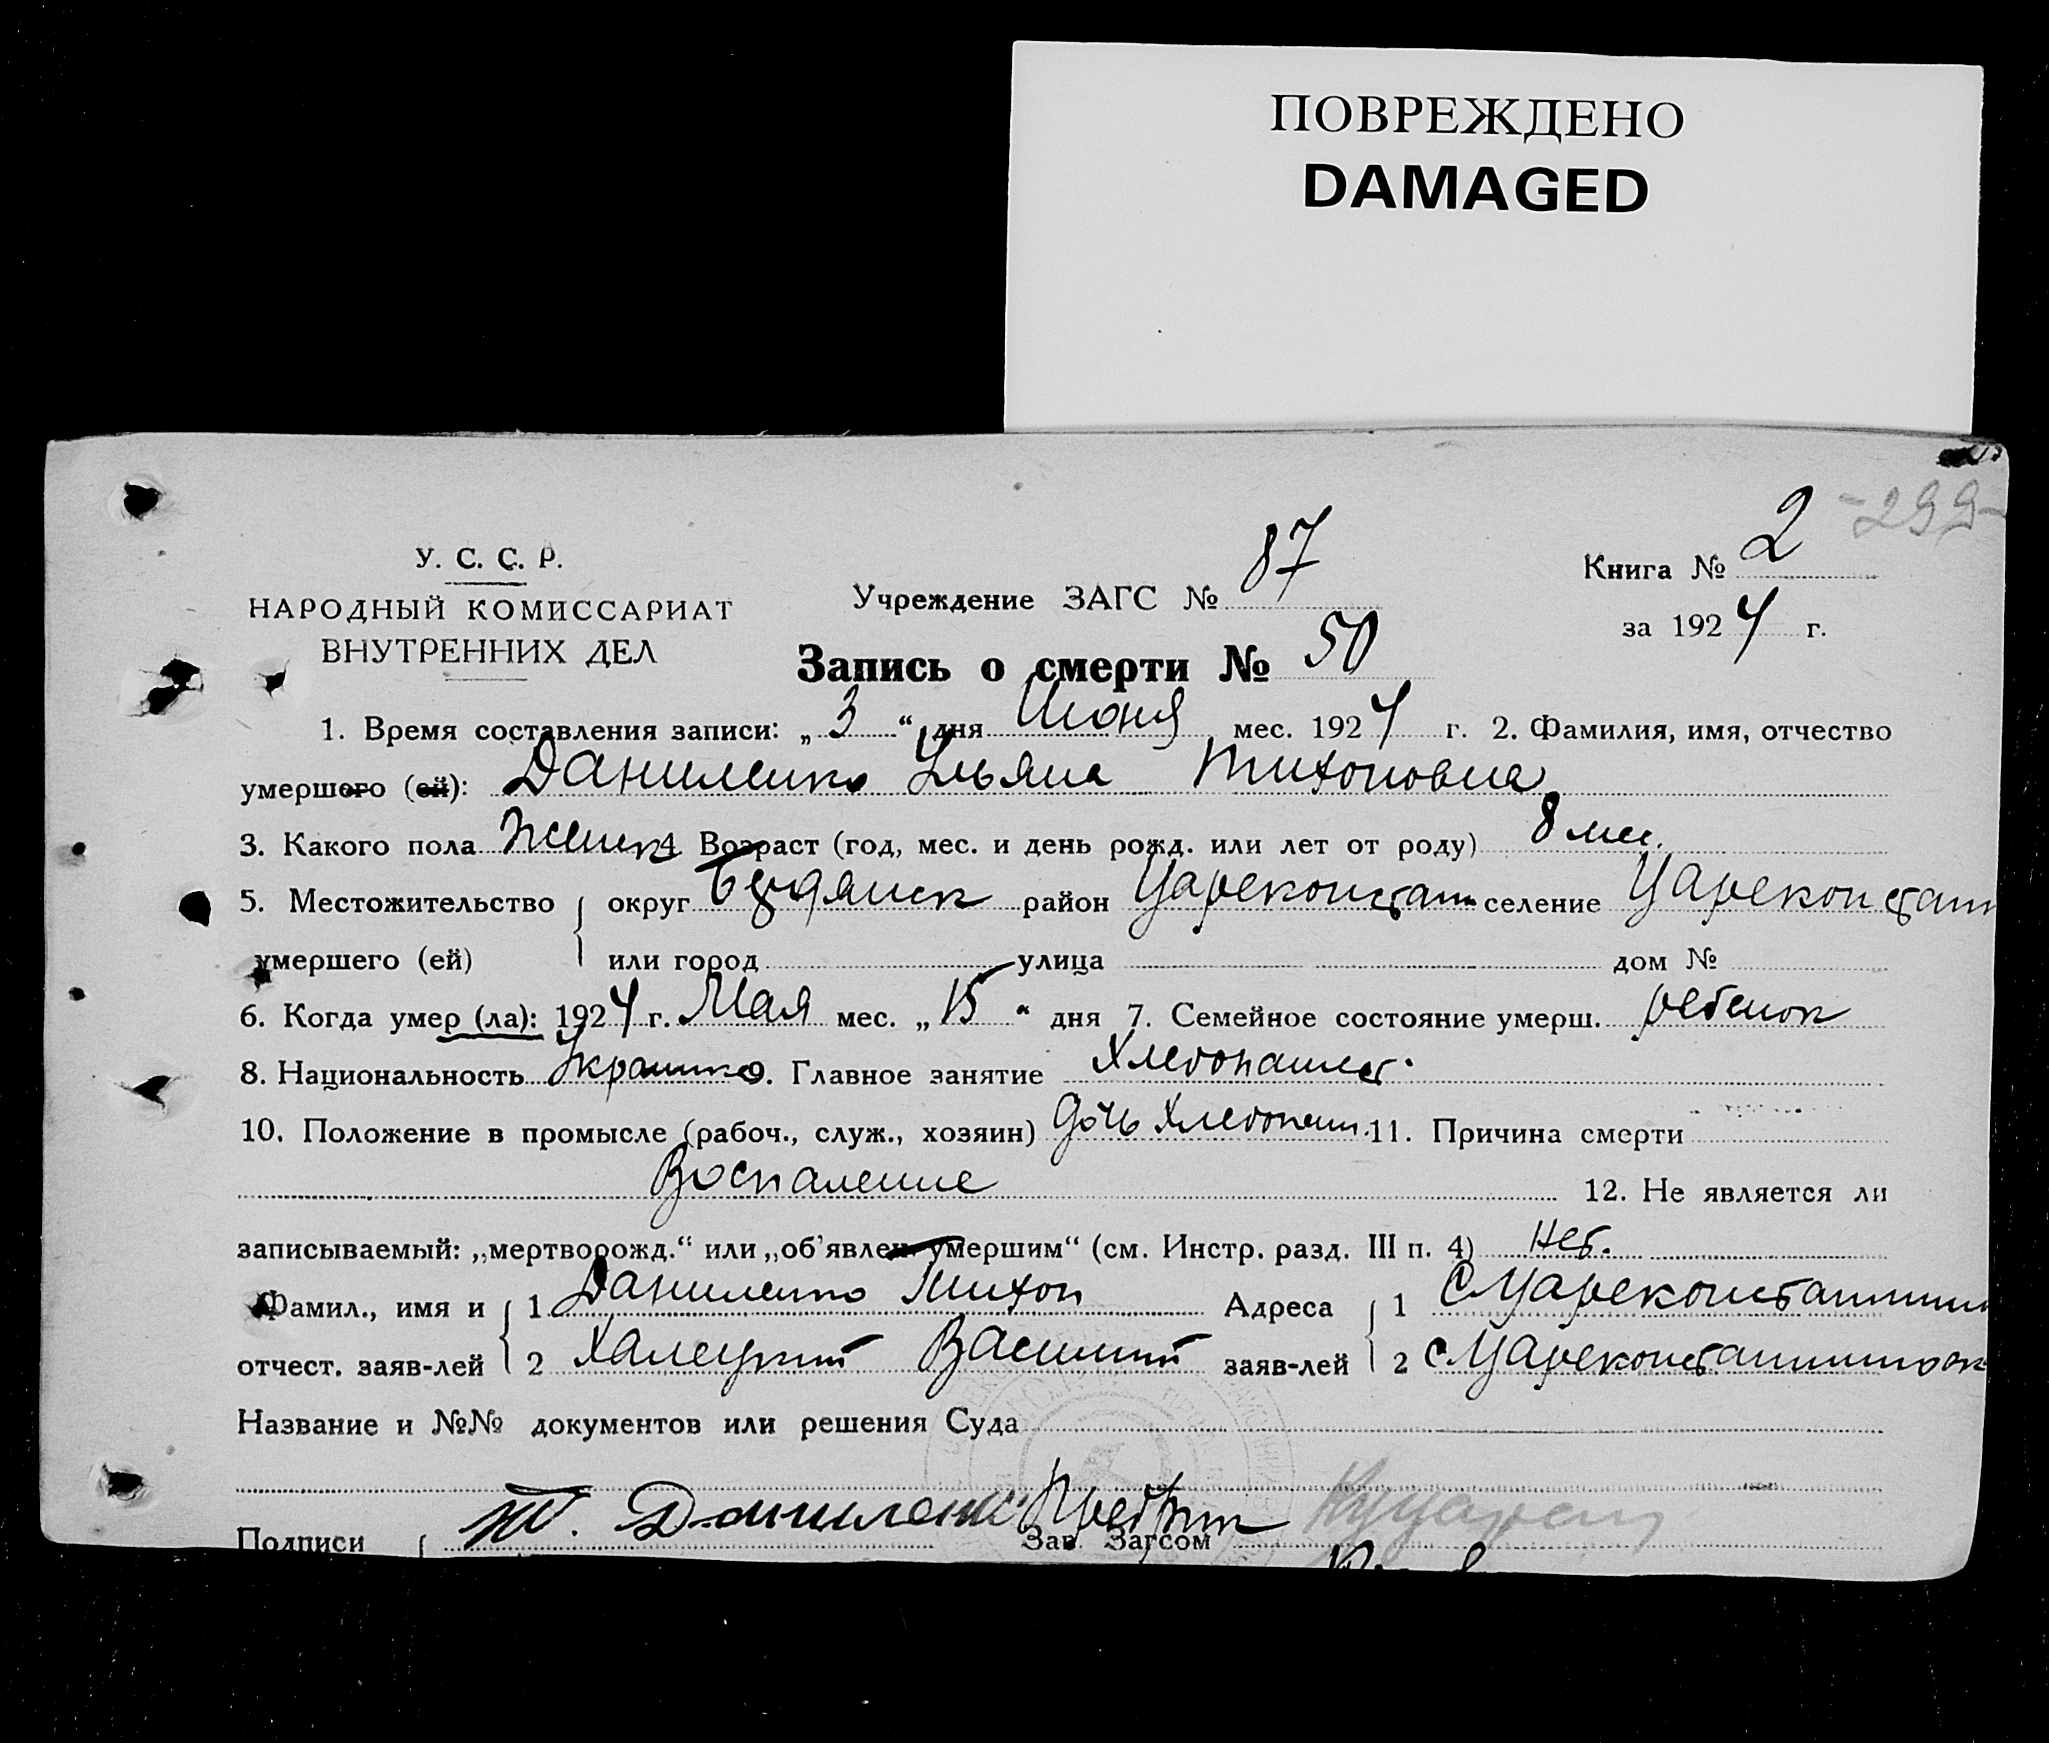 ПОВРЕЖДЕНО
DAMAGED
-299-
У. С. С. Р.
НАРОДНЫЙ КОМИССАРИАТ
ВНУТРЕННИХ ДЕЛ
Учреждение ЗАГС № 87
Книга № 2
за 1924 г.
Запись о смерти № 50
1. Время составления записи: „3“ дня Июня мес. 1924 г. 2. Фамилия, имя, отчество
умершего (ей): Даниленко Ульяна Тихоновна
3. Какого пола Женск 4 Возраст (год, мес. и день рожд. или лет от роду) 8 мес.
5. Местожительство округ Бердянск район Цареконстант селение Цареконстант
умершего (ей) или город улица дом №
6. Когда умер (ла): 1924 г. Мая мес. „15“ дня 7. Семейное состояние умерш. ребенок
8. Национальность Украинка 9. Главное занятие Хлебопашест.
10. Положение в промысле (рабоч., служ., хозяин) дочь Хлебопаш. 11. Причина смерти
Воспаление 12. Не является ли
записываемый: „мертворожд.“ или „об’явлен. умершим“ (см. Инстр. разд. III п. 4) нет.
Фамил., имя и 1 Даниленко Тихон Адреса 1 с Цареконстантин
отчест. заяв-лей 2 Халецкий Василий заяв-лей 2 с Цареконстантиновк
Название и №№ документов или решения Суда
Подписи Т. Даниленко Зав. Загсом